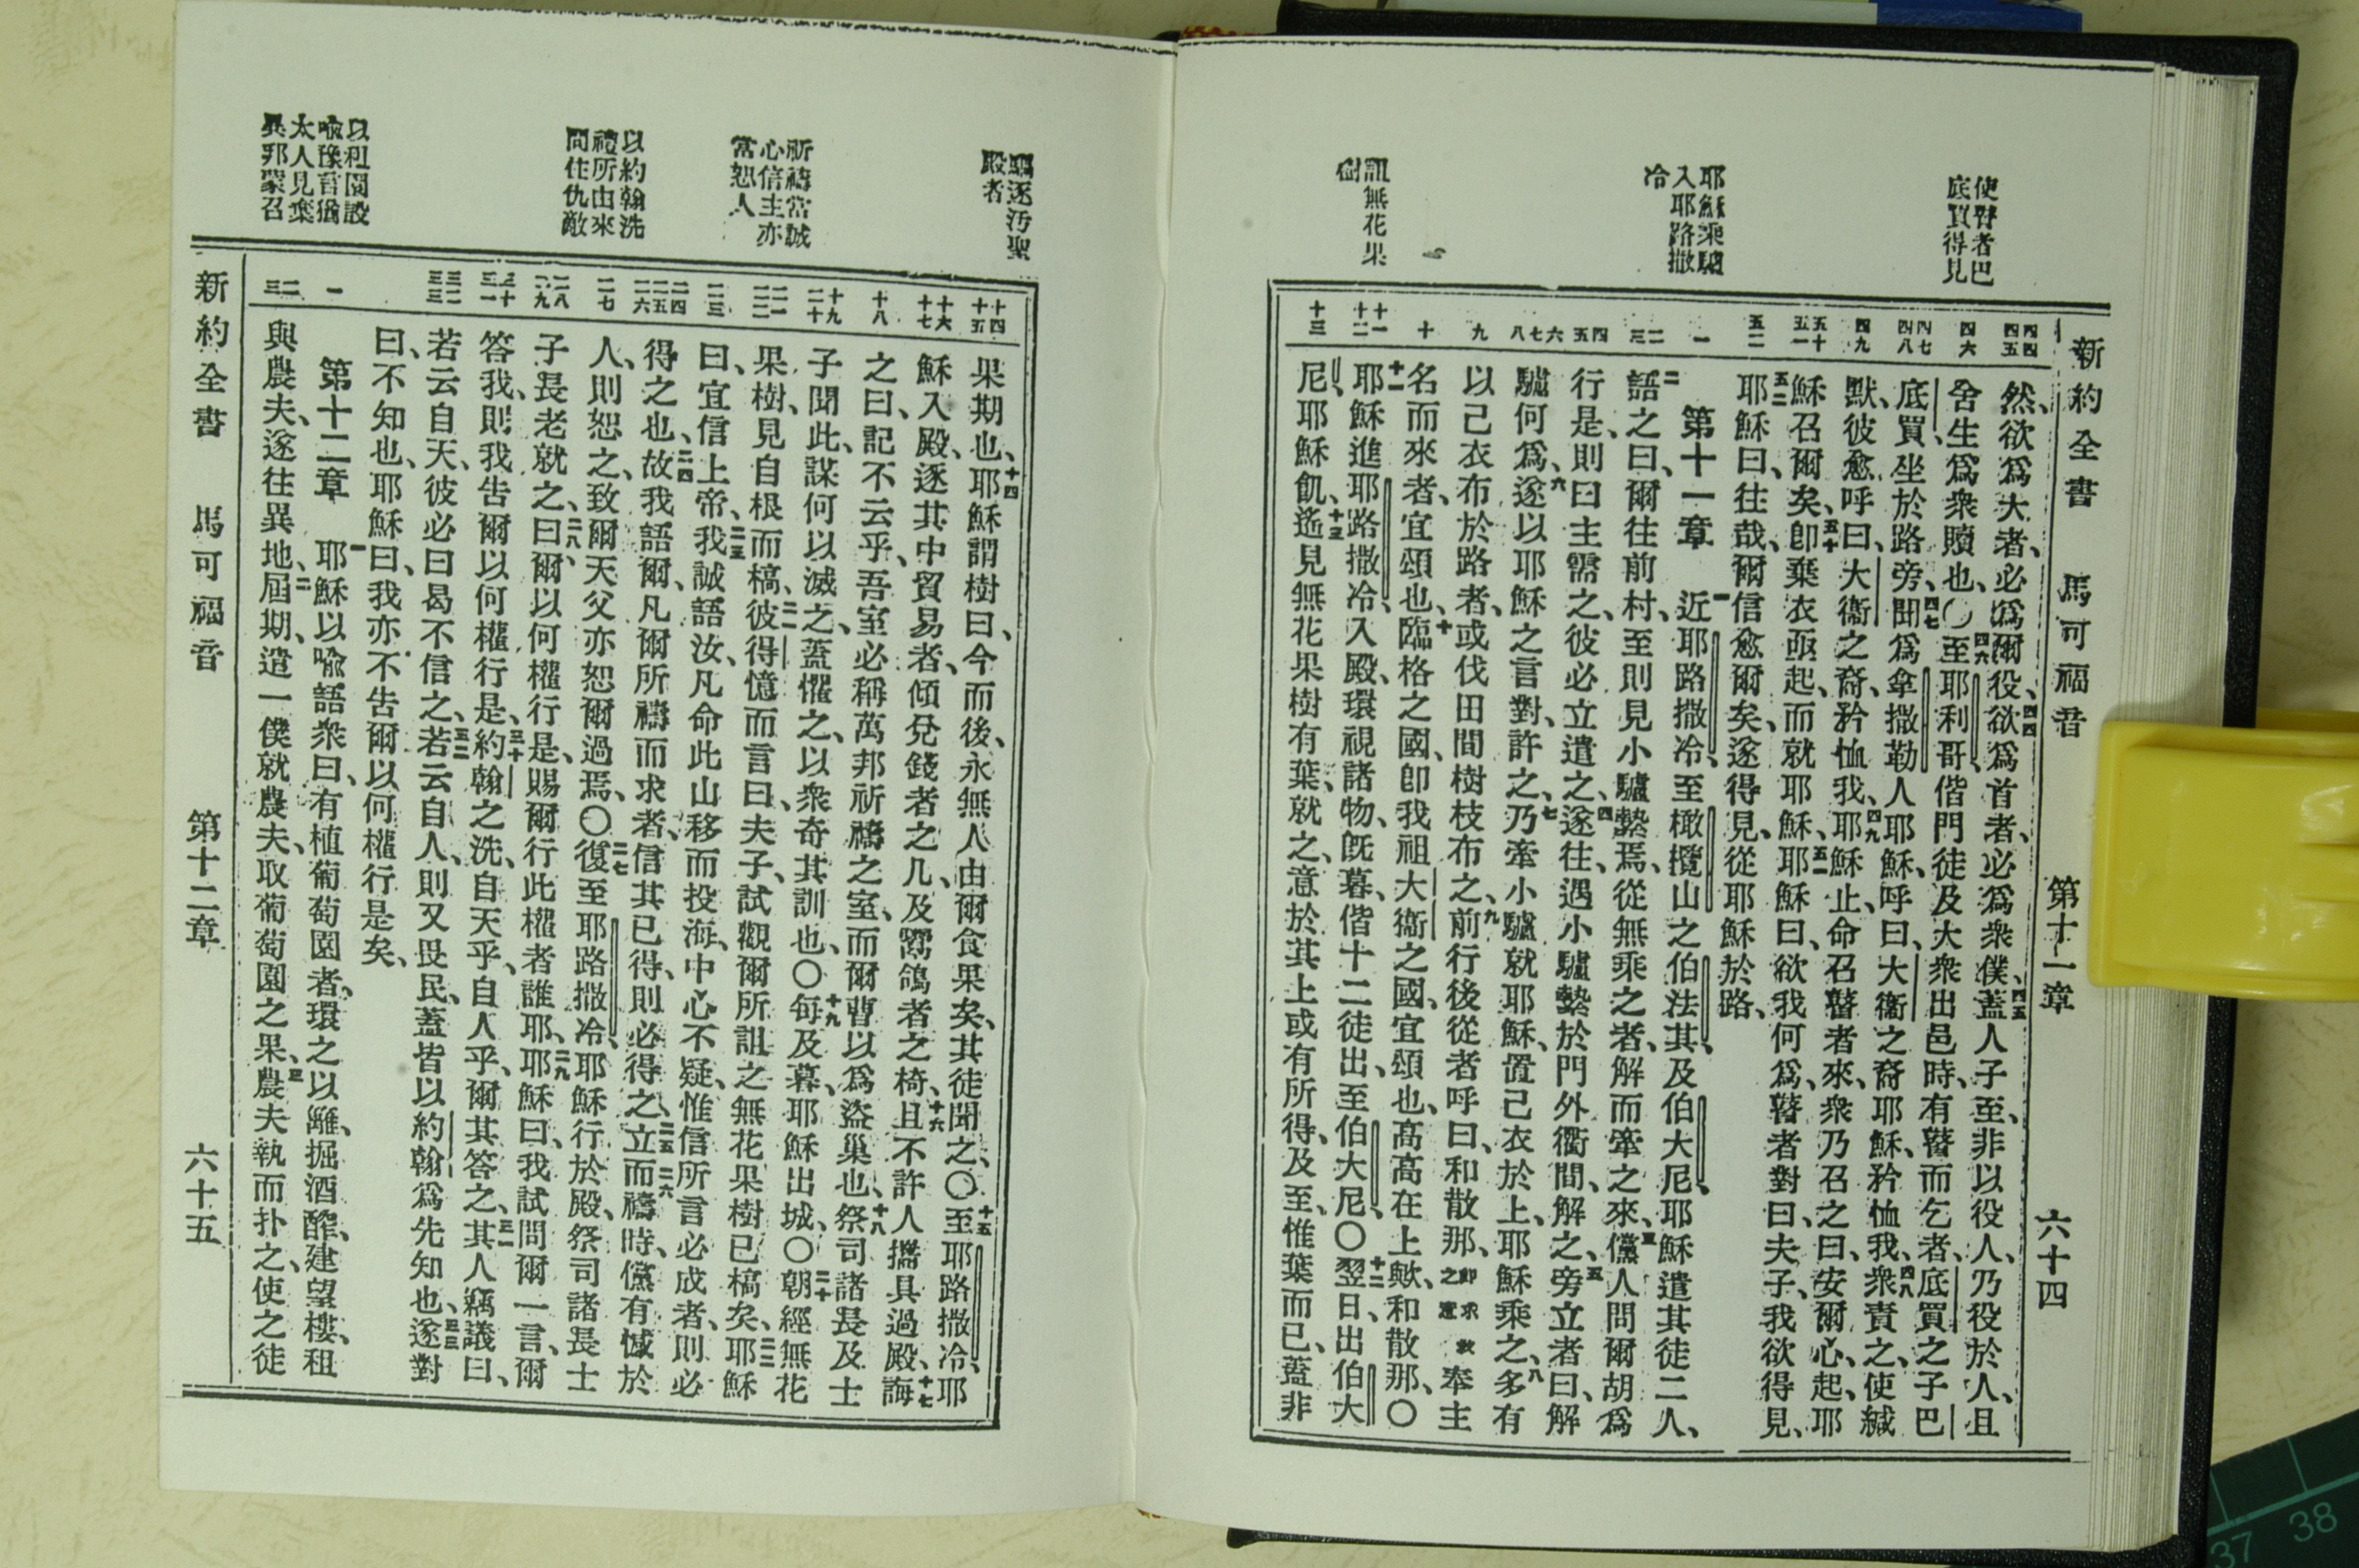 新約全書 馬可福音 第十一章 六十四
使瞽者巴
底買得見
耶穌乘驢
入耶路撒
冷
詛無花果
樹
四四 四五
四六
四七 四八
四九
五十 五一
五二
一
二 三
四 五
六 七 八
九
十
十一 十二
十三
然、欲爲大者、必爲爾役、四四欲爲首者、必爲衆僕、四五蓋人子至、非以役人、乃役於人、且
舍生爲衆贖也、〇四六至耶利哥、偕門徒及大衆出邑時、有瞽而乞者、底買之子巴
底買、坐於路旁、四七聞爲拿撒勒人耶穌、呼曰、大衞之裔耶穌、矜恤我、四八衆責之、使緘
默、彼愈呼曰、大衞之裔、矜恤我、四九耶穌止、命召瞽者來、衆乃召之曰、安爾心、起、耶
穌召爾矣、五十卽棄衣亟起、而就耶穌、五一耶穌曰、欲我何爲、瞽者對曰、夫子、我欲得見、
五二耶穌曰、往哉、爾信愈爾矣、遂得見、從耶穌於路、
第十一章 一近耶路撒冷、至橄欖山之伯法其、及伯大尼、耶穌遣其徒二人、
二語之曰、爾往前村、至則見小驢縶焉、從無乘之者、解而牽之來、三儻人問爾胡爲
行是、則曰主需之、彼必立遣之、四遂往、遇小驢縶於門外衢間、解之、五旁立者曰、解
驢何爲、六遂以耶穌之言對、許之、七乃牽小驢就耶穌、置己衣於上、耶穌乘之、八多有
以己衣布於路者、或伐田間樹枝布之、九前行後從者呼曰、和散那、卽求救之意奉主
名而來者、宜頌也、十臨格之國、卽我祖大衞之國、宜頌也、高高在上歟、和散那、〇
十一耶穌進耶路撒冷、入殿、環視諸物、旣暮、偕十二徒出、至伯大尼、〇十二翌日、出伯大
尼、耶穌飢、十三遙見無花果樹有葉、就之、意於其上或有所得、及至、惟葉而已、蓋非
驅逐汚聖
殿者
祈禱當誠
心信主亦
當恕人
以約翰洗
禮所由來
問住仇敵
以租園設
喩豫言猶
太人見棄
異邦蒙召
十四 十五
十六 十七
十八
十九 二十
二一 二二
二三
二四 二五 二六
二七
二八 二九
三十 三一
三二 三三
一
二 三
果期也、十四耶穌謂樹曰、今而後、永無人由爾食果矣、其徒聞之、〇十五至耶路撒冷、耶
穌入殿、逐其中貿易者、傾兌錢者之几、及鬻鴿者之椅、十六且不許人攜具過殿、十七誨
之曰、記不云乎、吾室必稱萬邦祈禱之室、而爾曹以爲盜巢也、十八祭司諸長及士
子聞此、謀何以滅之、蓋懼之、以衆奇其訓也、〇十九每及暮、耶穌出城、〇二十朝經無花
果樹、見自根而槁、二一彼得憶而言曰、夫子、試觀爾所詛之無花果樹已槁矣、二二耶穌
曰、宜信上帝、二三我誠語汝、凡命此山移而投海、中心不疑、惟信所言必成者、則必
得之也、二四故我語爾、凡爾所禱而求者、信其已得、則必得之、二五立而禱時、二六儻有憾於
人、則恕之、致爾天父亦恕爾過焉、〇二七復至耶路撒冷、耶穌行於殿、祭司諸長士
子長老就之、二八曰、爾以何權行是、賜爾行此權者誰耶、二九耶穌曰、我試問爾一言、爾
答我、則我吿爾以何權行是、三十約翰之洗、自天乎、自人乎、爾其答之、三一其人竊議曰、
若云自天、彼必曰曷不信之、三二若云自人、則又畏民、蓋皆以約翰爲先知也、三三遂對
曰、不知也、耶穌曰、我亦不吿爾以何權行是矣、
第十二章 一耶穌以喩語衆曰、有植葡萄園者、環之以籬、掘酒醡、建望樓、租
與農夫、遂往異地、二屆期、遣一僕就農夫、取葡萄園之果、三農夫執而扑之、使之徒
新約全書 馬可福音 第十二章 六十五
37 38